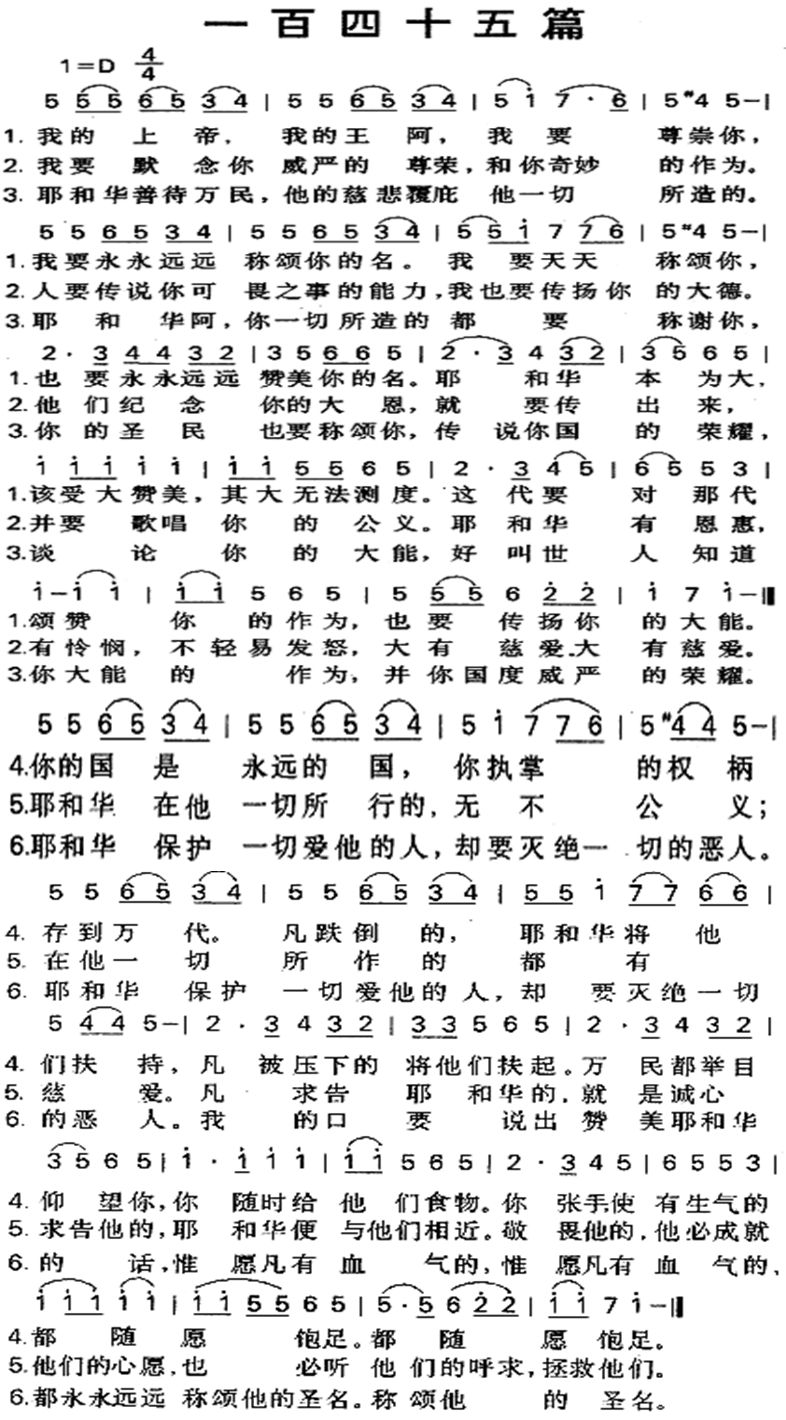 一百四十五篇
1=D 4/4
5 5 5 5 6 5 3 4 | 5 5 6 5 3 4 | 5 i 7 · 6 | 5 #4 5 - |
1. 我的 上 帝, 我的王 阿, 我 要 尊崇你,
2. 我要 默 念你 威严的 尊荣,和你奇妙 的作为。
3. 耶和华善待万民,他的慈悲覆庇 他一切 所造的。
5 5 6 5 3 4 | 5 5 6 5 3 4 | 5 5 i 7 7 6 | 5 #4 5 - |
1.我要永永远远 称颂你的名。 我 要天天 称颂你,
2.人要传说你可 畏之事的能力,我也要传扬你 的大德。
3.耶 和 华阿,你一切所造的 都 要 称谢你,
2 · 3 4 4 3 2 | 3 5 6 6 5 | 2 · 3 4 3 2 | 3 5 6 5 |
1.也 要永永远远 赞美你的名。耶 和华 本 为大,
2.他 们纪 念 你的大 恩,就 要传 出 来,
3.你 的圣 民 也要称颂你,传 说你国 的 荣耀,
i i i i i | i i 5 5 6 5 | 2 · 3 4 5 | 6 5 5 3 |
1.该受大赞美,其大无法测度。这 代要 对 那代
2.并要 歌唱 你 的 公义。耶 和华 有 恩惠,
3.谈 论 你 的 大能,好 叫世 人 知道
i - i i | i i 5 6 5 | 5 5 5 6 2 2 | i 7 i - ‖
1.颂赞 你 的作为,也要 传扬你 的大能。
2.有怜悯,不轻易发怒,大有 慈爱.大 有慈爱。
3.你大能 的 作为,并你国度威严 的荣耀。
5 5 6 5 3 4 | 5 5 6 5 3 4 | 5 i 7 7 6 | 5 #4 4 5 - |
4.你的国 是 永远的 国, 你执掌 的权 柄
5.耶和华 在他 一切所 行的,无 不 公 义;
6.耶和华 保护 一切爱他的人,却要灭绝一 切的恶人。
5 5 6 5 3 4 | 5 5 6 5 3 4 | 5 5 i 7 7 6 6 |
4. 存到万 代。 凡跌倒 的, 耶和华将 他
5. 在他一 切 所 作 的 都 有
6. 耶和华 保护 一切爱他的人,却 要灭绝一切
5 4 4 5 - | 2 · 3 4 3 2 | 3 3 5 6 5 | 2 · 3 4 3 2 |
4. 们扶 持,凡 被压下的 将他们扶起。万 民都举目
5. 慈 爱。凡 求告 耶 和华的,就 是诚心
6. 的恶 人。我 的口 要 说出 赞 美耶和华
3 5 6 5 | i · i i i | i i 5 6 5 | 2 · 3 4 5 | 6 5 5 3 |
4. 仰 望你,你 随时给 他 们食物。你 张手使 有生气的
5. 求告他的,耶 和华便 与他们相近。敬 畏他的,他必成就
6. 的 话,惟 愿凡有 血 气的,惟 愿凡有 血 气的,
i i i i i | i i 5 5 6 5 | 5 · 5 6 2 2 | i i 7 i - ‖
4.都 随 愿 饱足。都 随 愿 饱足。
5.他们的心愿,也 必听 他 们的呼求,拯救他们。
6.都永永远远 称颂他的圣名。称 颂他 的 圣名。